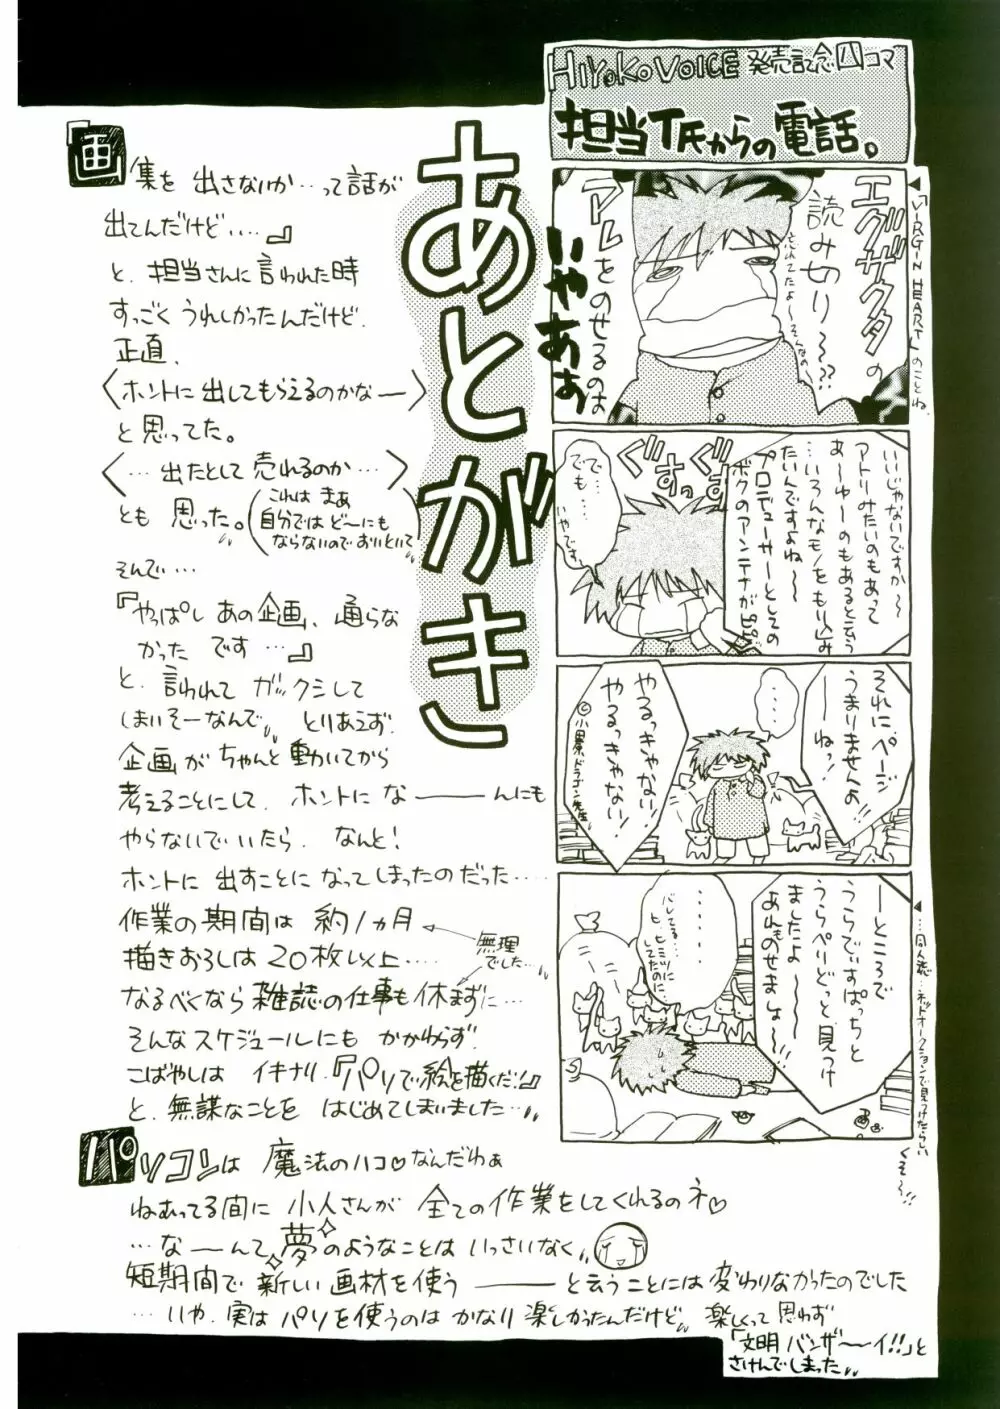 あとがき
『画集を出さないか…って話が
出てんだけど‥‥』
と、担当さんに言われた時
すっごくうれしかったんだけど、
正直、
〈ホントに出してもらえるのかなー〉
と思ってた。
〈…出たとして売れるのか…〉
とも思った。(これはまぁ
自分ではど〜にも
ならないのでおいといて)
そんで…
『やっぱしあの企画、通らな
かったです…』
と、言われてガックシして
しまいそーなんで、とりあえず、
企画がちゃんと動いてから
考えることにして、ホントになーーんにも
やらないでいたら、なんと!
ホントに出すことになってしまったのだった‥‥
作業の期間は約1ヵ月
描きおろしは20枚以上‥‥
無理
でした…
なるべくなら雑誌の仕事も休まずに…
そんなスケジュールにもかかわらず、
こばやしはイキナリ、『パソで絵を描くだ!』
と、無謀なことをはじめてしまいました…
パソコンは魔法のハコ♡なんだわぁ
ねむってる間に小人さんが全ての作業をしてくれるのネ♡
…なーーんて、夢のようなことはいっさいなく、
短期間で新しい画材を使うーーーと云うことには変わりなかったのでした
…いや、実はパソを使うのはかなり楽しかったんだけど、楽しくって思わず
「文明バンザ〜〜イ!!」と
さけんでしまった
HIYOKO VOICE 発売記念四コマ
担当T氏からの電話。
◀『VIRGIN HEART』のことね。
エグザクタの
読み切り〜〜??
忘れてたよ〜そんなの
アレをのせるのは
いやぁぁ
いいじゃないですか〜
アトリみたいのもあって
あ〜ゆーのもあると云う
…いろんなモノをもり込み
たいんですよね〜
プロデューサーとしての
ボクのアンテナが
ぐずぐずっ
でで…
でも…
いやです
それに、ページ
うまりませんよ
ーーねっ!
…
やるっきゃない!
やるっきゃない!
©小田原ドラゴン先生
ーところで
うらでぃすぱっちと
うらぺりどっと見っけ
ましたよ〜〜
あんものせましょ〜〜!!
‥‥‥‥
バレてる…
ヒ、ヒミツに
してたのに
◀…同人誌。…ネットオークションで見つけたらしい
くそ〜!!